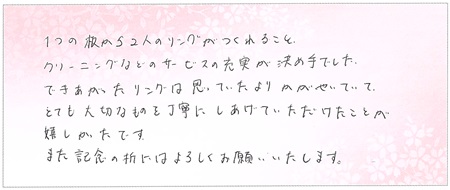 1つの板から2人のリングがつくれること、
クリーニングなどのサービスの充実が決め手でした。
できあがったリングは思っていたよりかがやいていて、
とても大切なものを丁寧にしあげていただけたことが
嬉しかったです。
また記念の折にはよろしくお願いいたします。